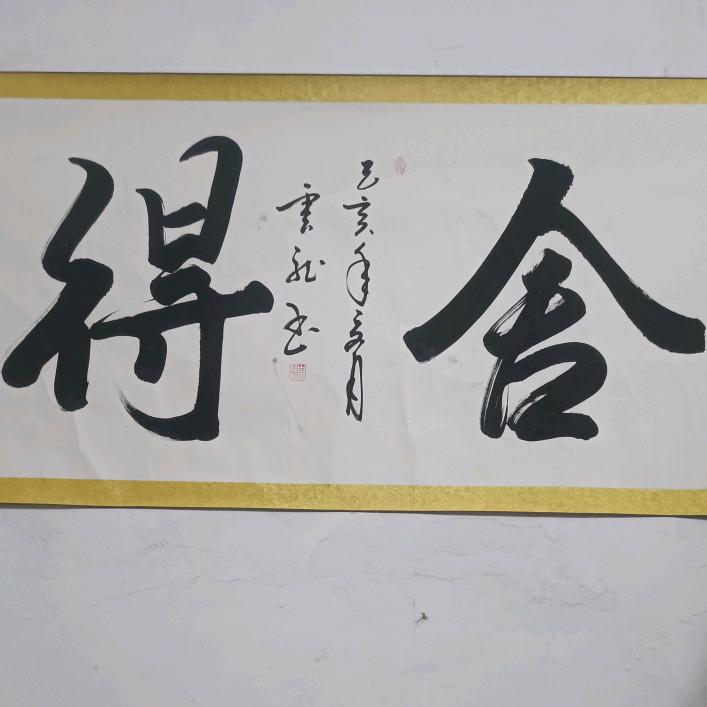 舍得
己亥年夏月
雲龙书